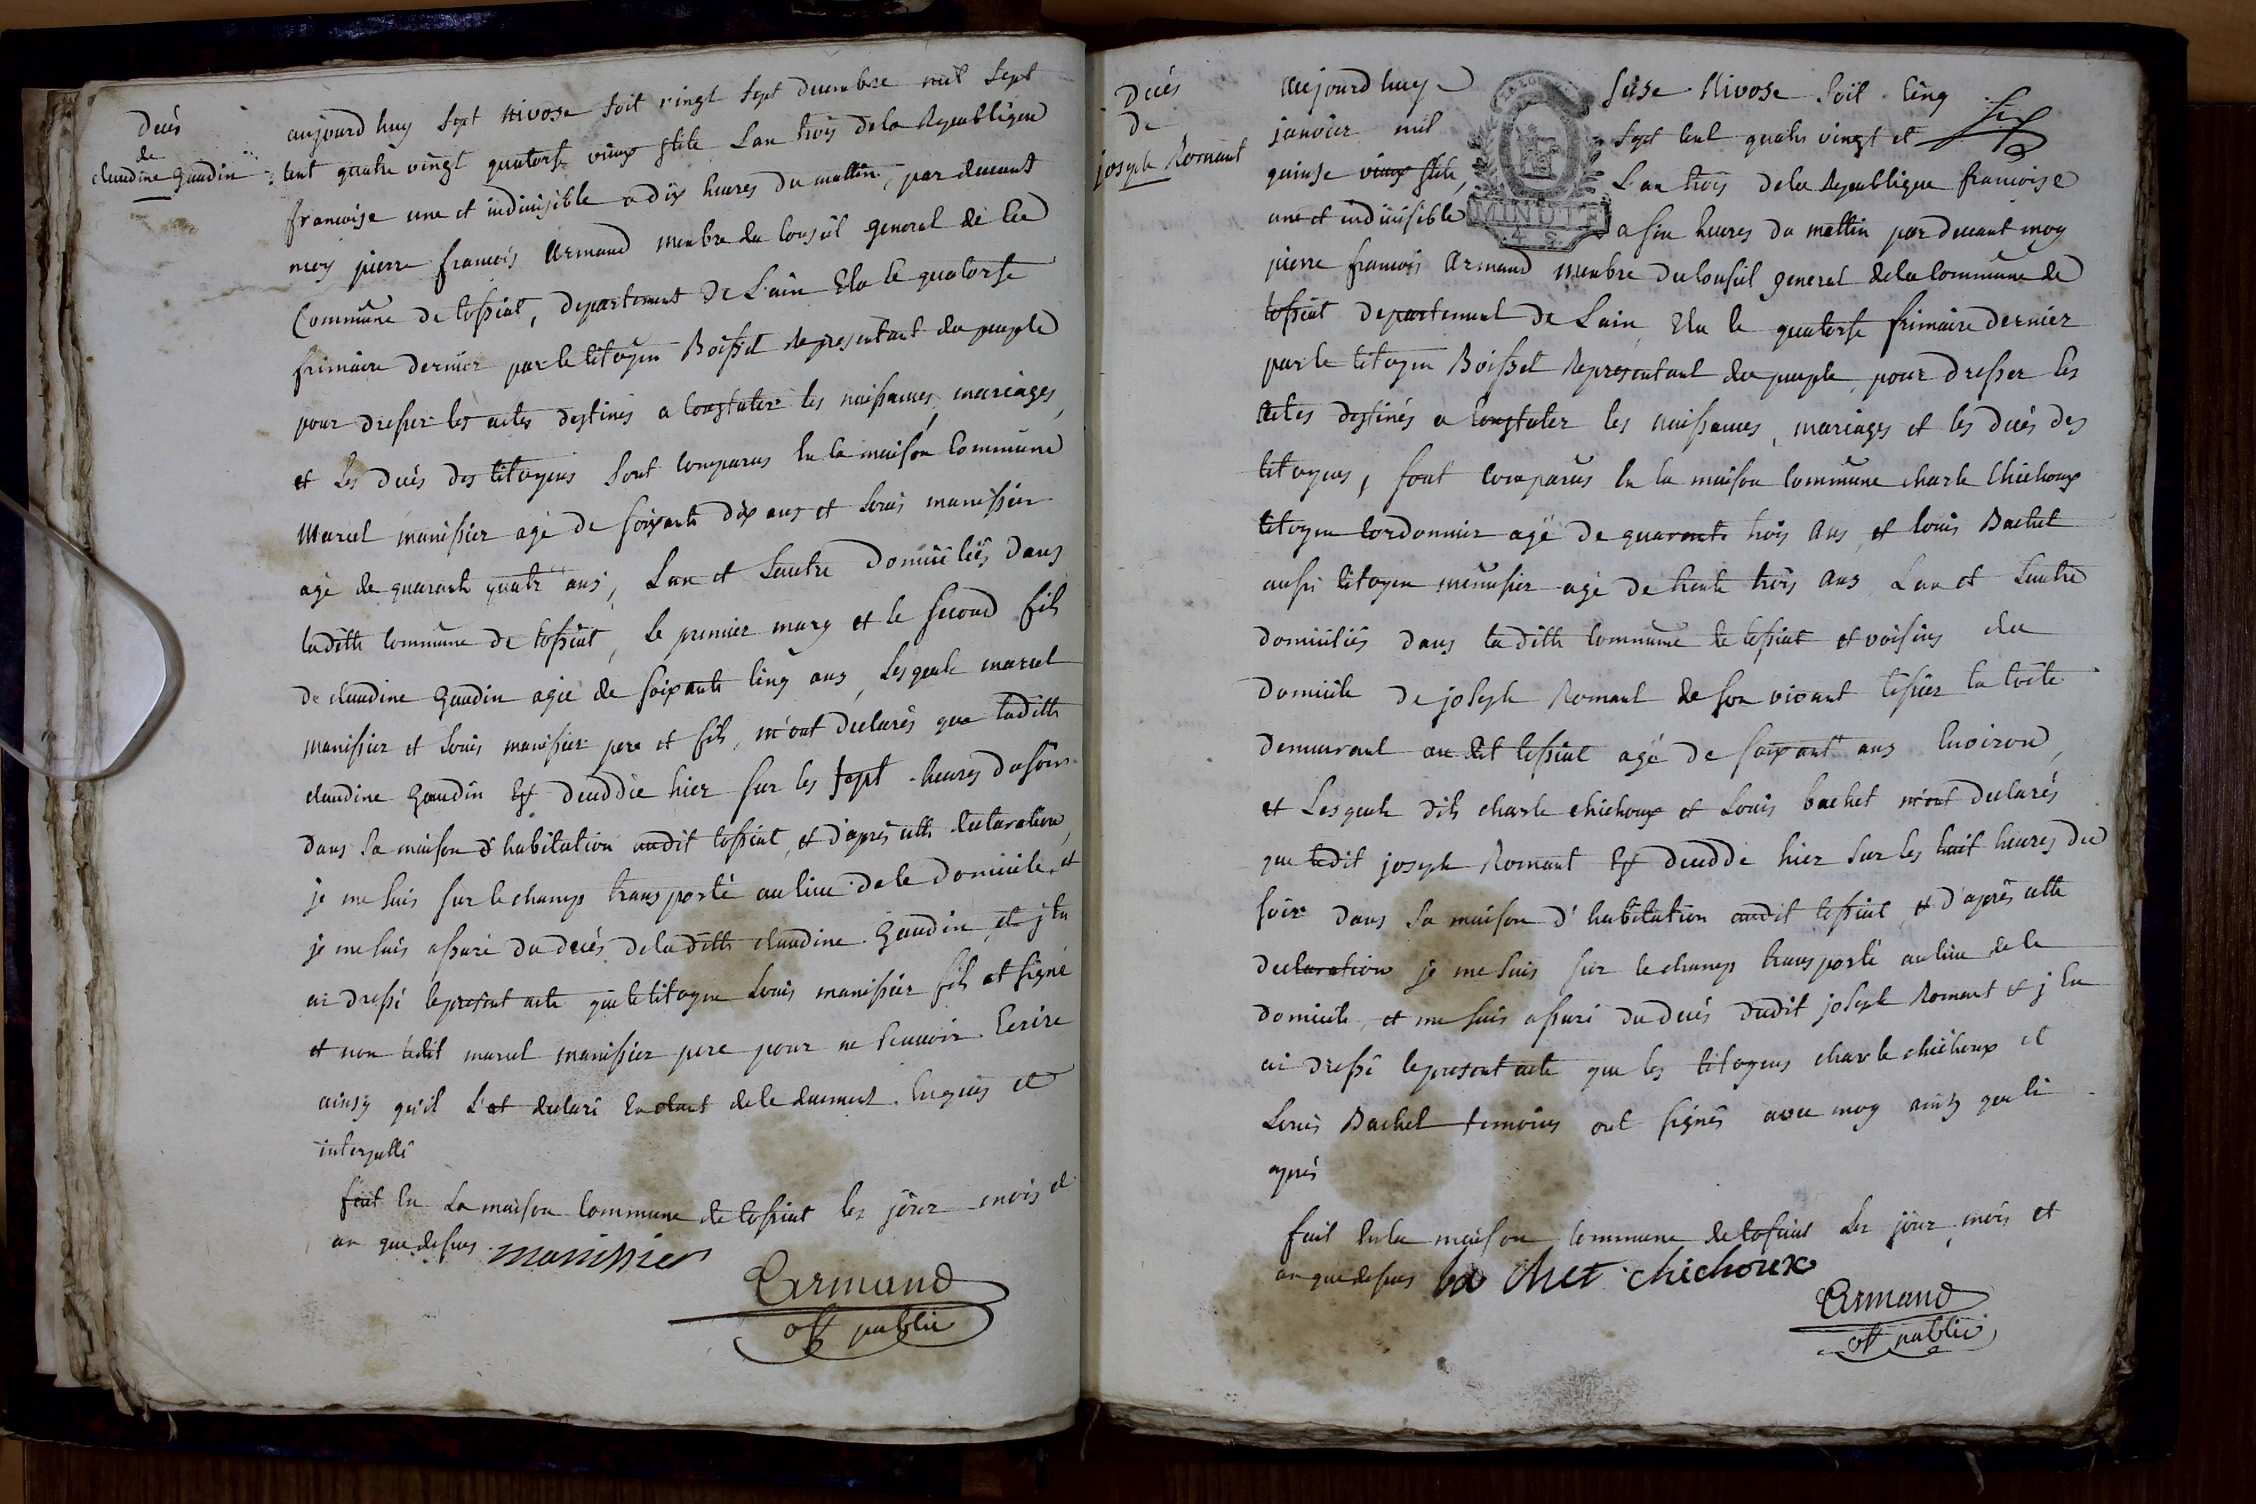 Decés
de
claudine Gaudin
aujourd huy sept nivose soit vingt sept decembre mil sept
cent quatre vingt quatorse vieux stile L'an trois de la Republique
francoise une et indivisible a dix heures du mattin, par devant
moy pierre francois Armand membre du conseil general de la
Commune de tossiat, departement de L'ain Elu le quatorse
frimaire dernier par le citoyen Boisset representant du peuple
pour dresser les actes destinés a constater les naissances, mariages,
et les decés des citoyens sont comparus en la maison commune
Marcel manissier agé de soixante dix ans et Louis manissier
agé de quarante quatre ans, L'un et L'autre domiciliés dans
laditte commune de tossiat, le premier mary et le second fils
de claudine Gaudin agée de soixante cinq ans, Lesquels marcel
manissier et Louis manissier pere et fils, m'ont declarés que laditte
claudine Gaudin Est deceddée hier sur les sept heures du soir
dans sa maison d'habitation audit tossiat, et d'après cette declaration,
je me suis sur le champ transporté au lieu de le domicile, et
je me suis assuré du decés de laditte claudine Gaudin, et j'en
ai dressé le present acte que le citoyen Louis manissier fils at signé
et non ledit marcel manissier pere pour ne scavoir Ecrire
ainsy qu'il L'at declaré En etant de le duement Enquis et
interpellé
fait En La maison commune de tossiat les jour mois et
an que dessus manissier
Armand
off public
Decés
de
joseph Romant
aujourd huy seise Nivose soit cinq
janvier mil sept cent quatre vingt et
quinse vieux stile, L'an trois de la Republique francoise
une et indivisible a six heures du mattin par devant moy
MINUTE
pierre francois Armand membre du conseil general de la commune de
tossiat departement de L'ain, Elu le quatorse frimaire dernier
par le citoyen Boisset Representant du peuple, pour dresser les
actes destinés a constater les naissances, mariages et les decés des
citoyens, sont comparus En la maison commune charle Chichoux
citoyen cordonnier agé de quarante trois ans, et louis Bachet
aussi citoyen menusier agé de trente trois ans L'un et L'autre
domiciliés dans laditte commune de tossiat et voisins du
domicile de joseph Romant de son vivant tissier en toile
demeurant audit tossiat agé de soixante ans Environ,
et Lesquels dits charle chichoux et Louis bachet m'ont declarés
que ledit joseph Romant Est deceddé hier sur les huit heures du
soir dans sa maison d'habitation audit tossiat, et d'après cette
declaration je me suis sur le champ transporté au lieu de le
domicile, et me suis assuré du decés dudit joseph Romant et j'En
ai dressé le present acte que les citoyens charle chichoux et
Louis Bachet temoins ont signés avec moy ainsy que ci
après
fait En la maison commune de tossiat les jour, mois et
an que dessus ba Chet chichoux
Armand
off public